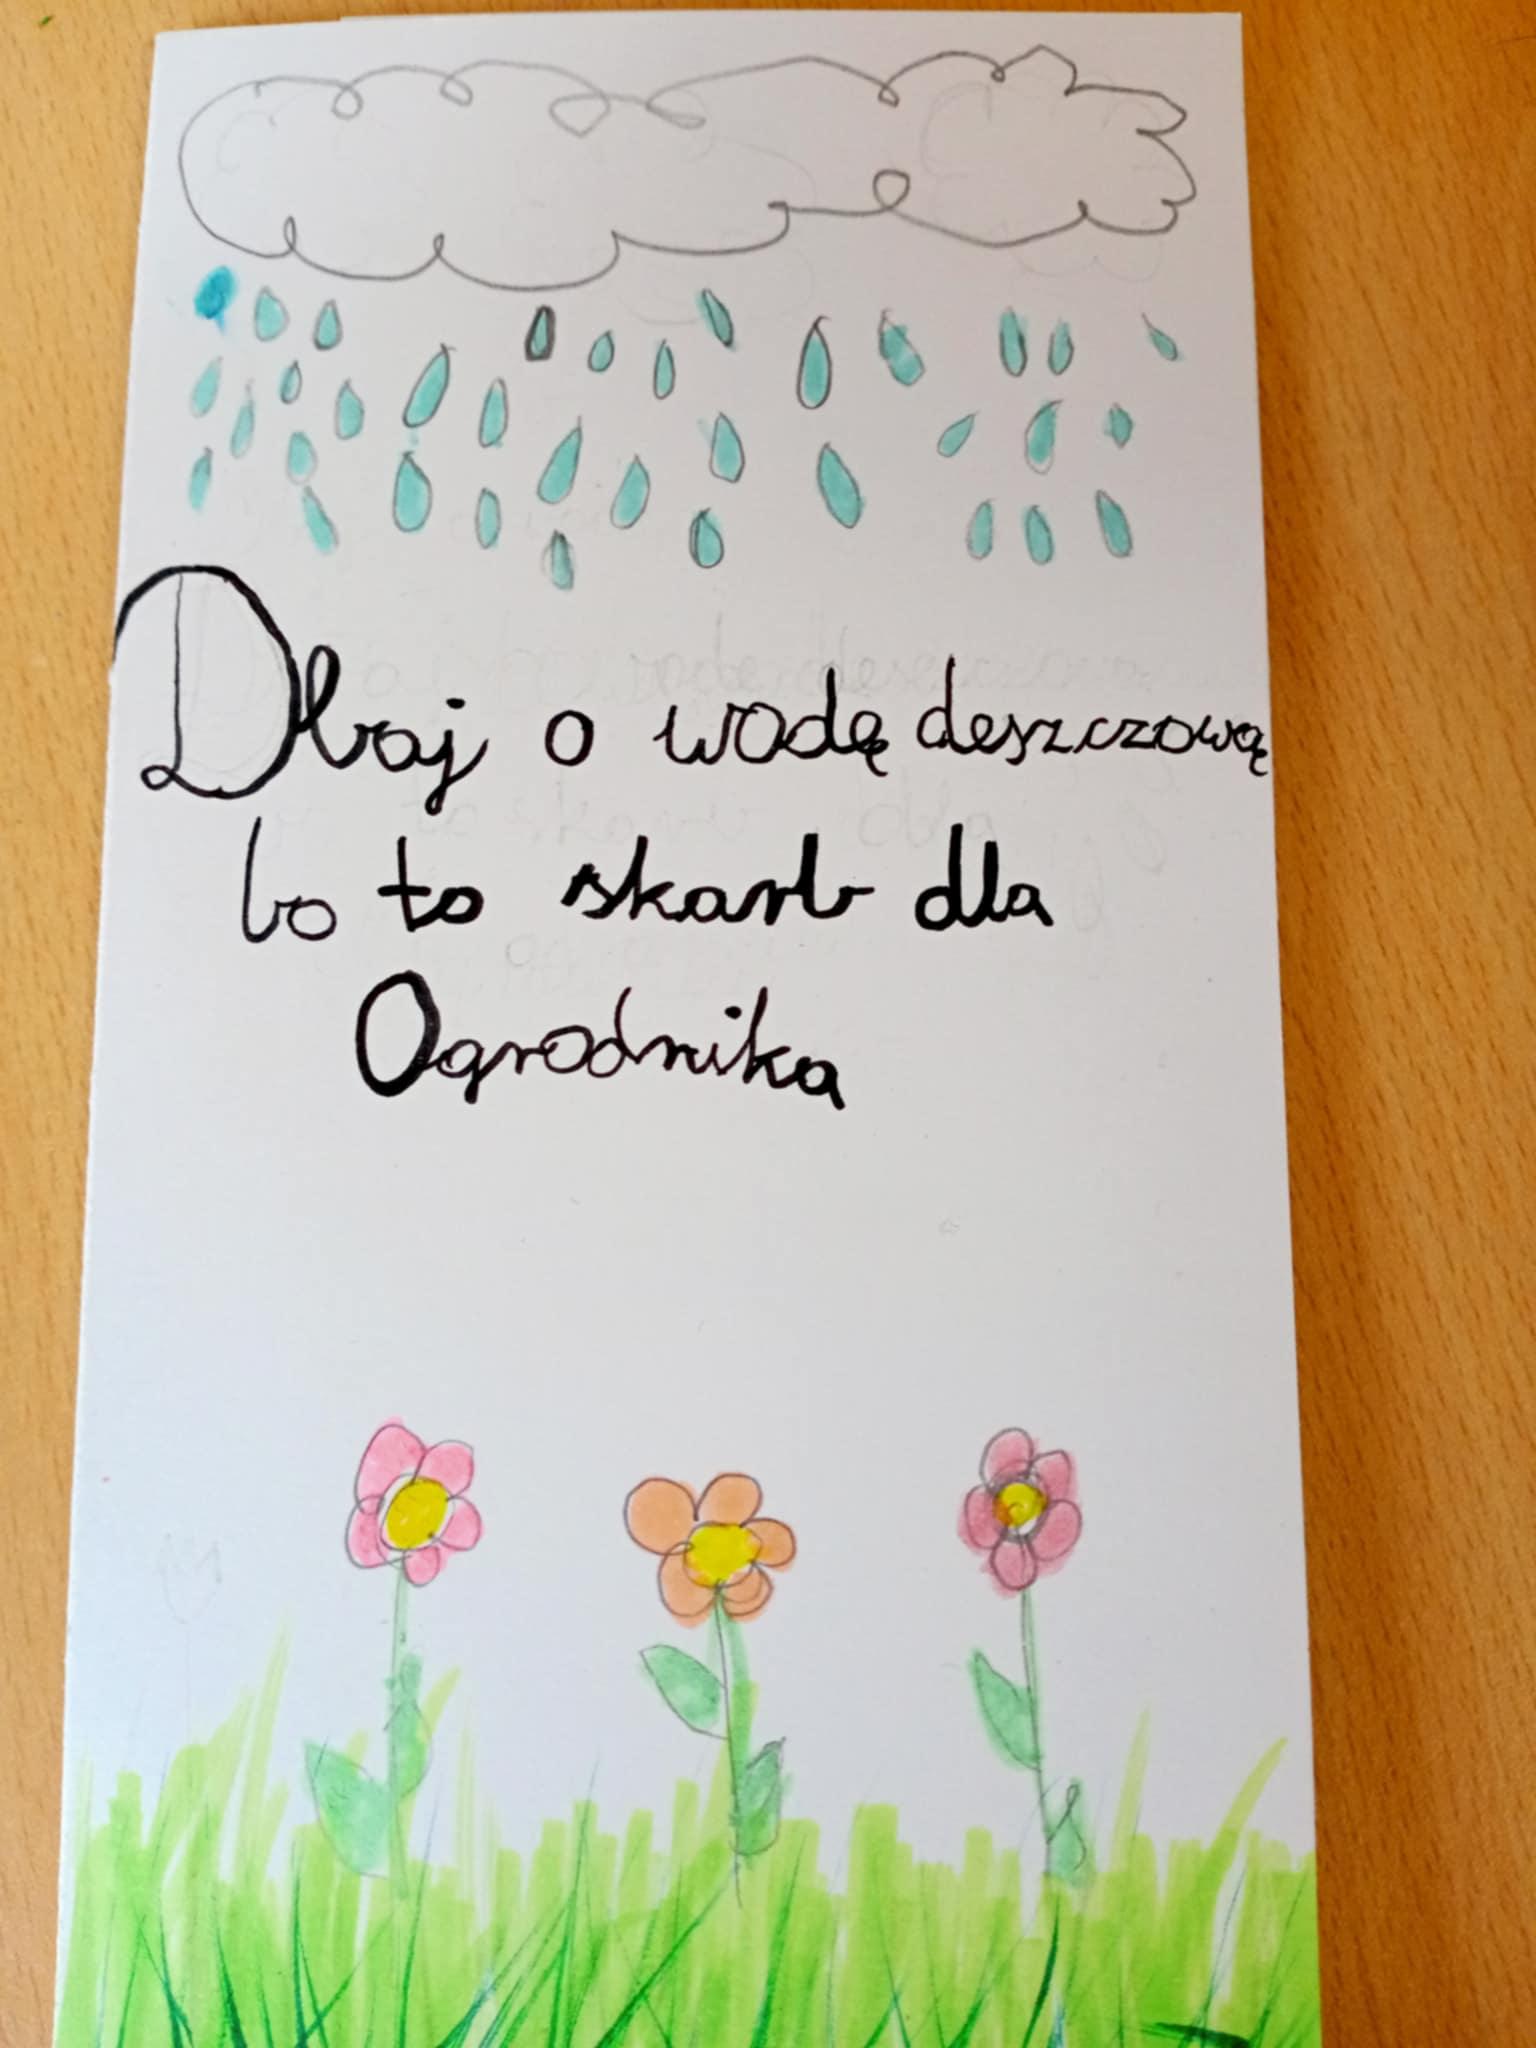 Dbaj o wodę deszczową
bo to skarb dla
Ogrodnika